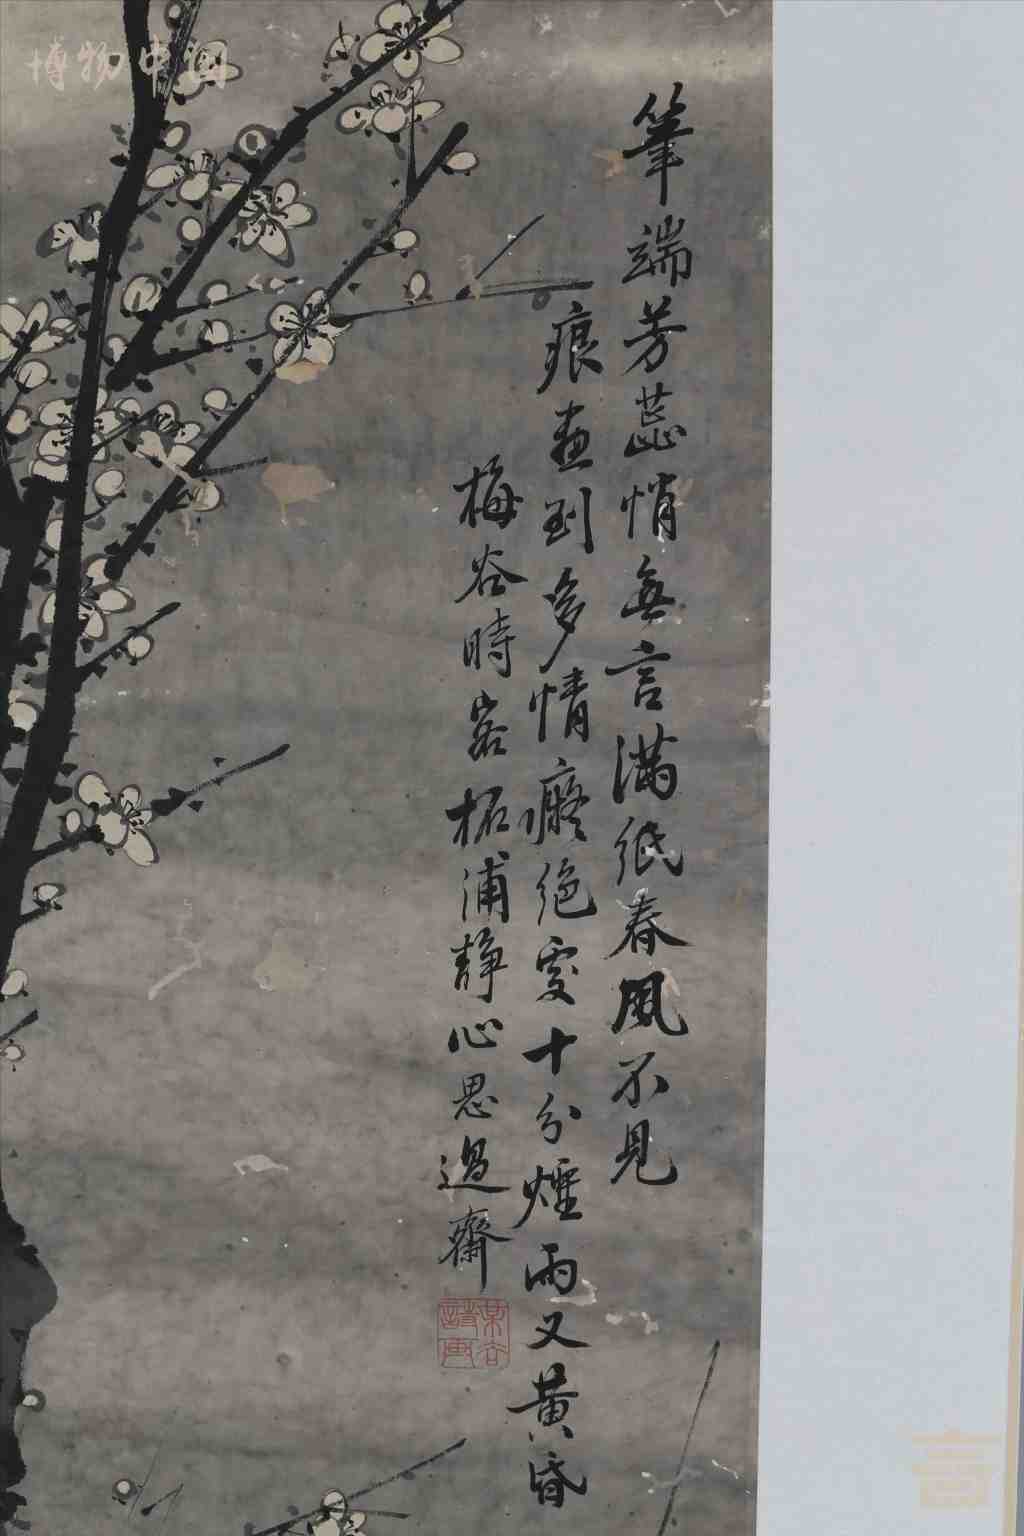 博物中国
筆端芳蕊悄無言滿紙春風不見
痕畫到多情癡絕處十分煙雨又黃昏
梅谷時客柘浦靜心思過齋